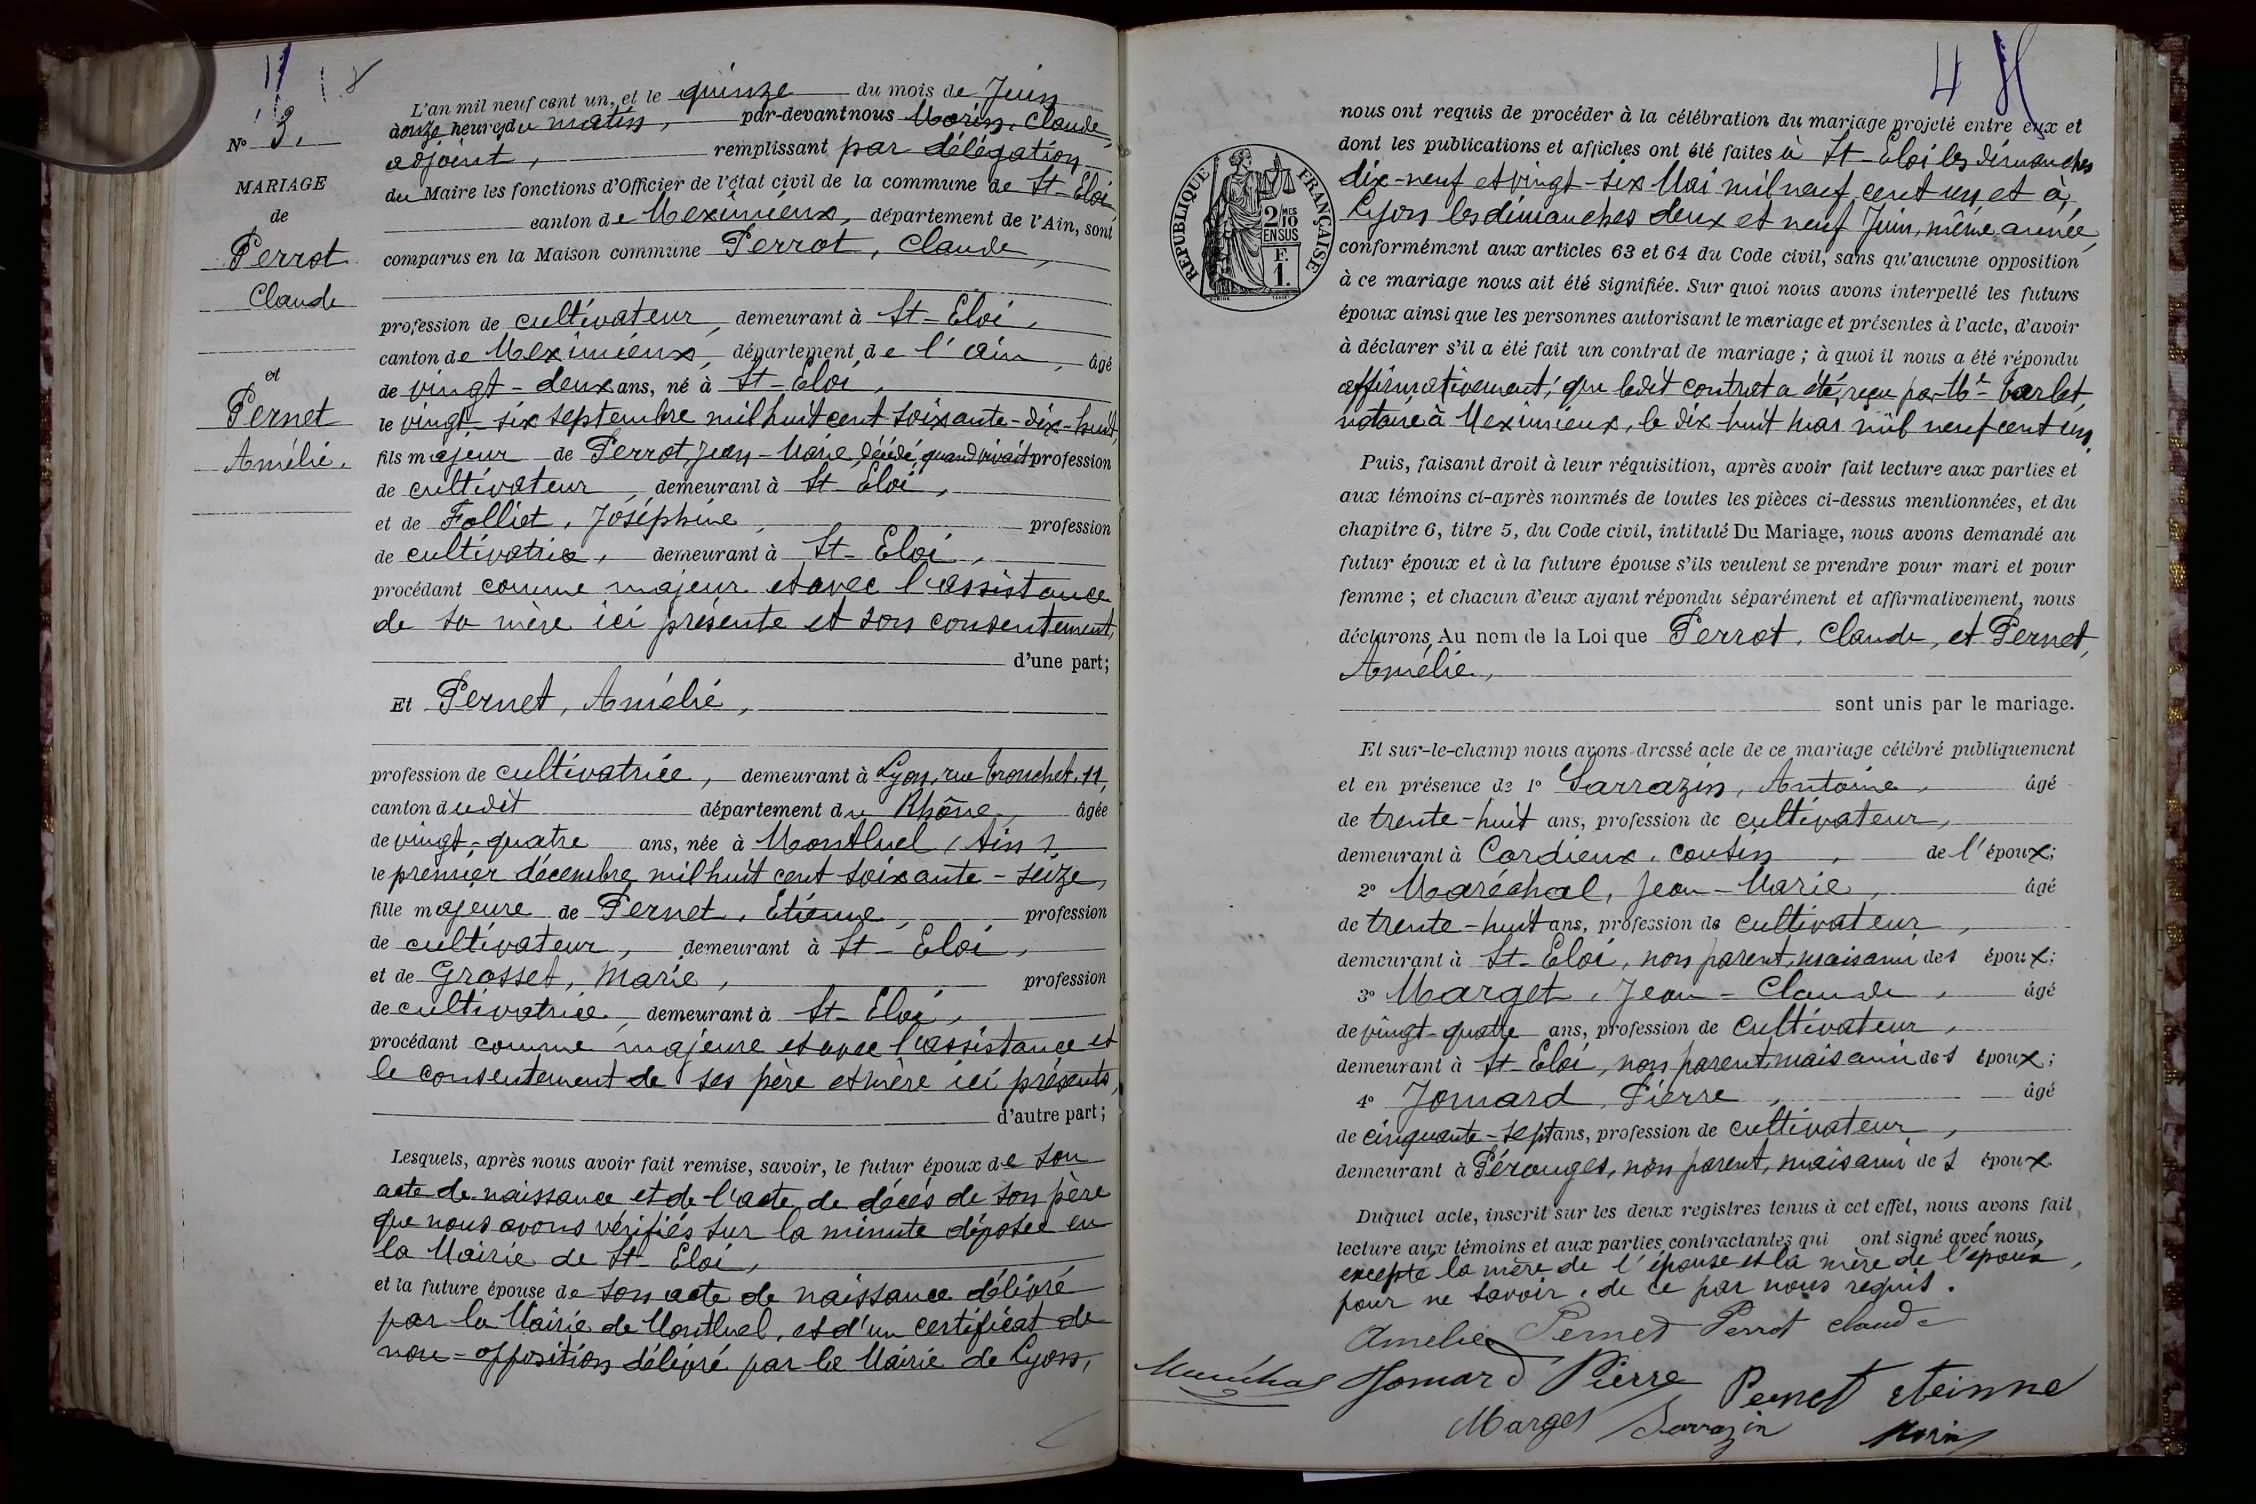 N° 3.
MARIAGE
de
Perrot
Claude
et
Pernet
Amélie.
L'an mil neuf cent un, et le quinze du mois de Juin
à onze heures du matin, par-devant nous Morin, Claude,
adjoint, remplissant par délégation
du Maire les fonctions d'Officier de l'état civil de la commune de St-Eloi
canton de Meximieux, département de l'Ain, sont
comparus en la Maison commune Perrot, Claude,
profession de cultivateur, demeurant à St-Eloi,
canton de Meximieux, département de l'ain, âgé
de vingt-deux ans, né à St-Eloi,
le vingt-six septembre mil huit cent soixante-dix-huit,
fils majeur de Perrot, Jean-Marie, décédé, quand vivait profession
de cultivateur, demeurant à St-Eloi,
et de Folliet, Joséphine, profession
de cultivatrice, demeurant à St-Eloi,
procédant comme majeur et avec l'assistance
de sa mère ici présente et son consentement,
d'une part;
Et Pernet, Amélie,
profession de cultivatrice, demeurant à Lyon, rue Tronchet, 11,
canton dudit département du Rhône, âgée
de vingt-quatre ans, née à Montluel (Ain)
le premier décembre mil huit cent soixante-seize,
fille majeure de Pernet, Etienne, profession
de cultivateur, demeurant à St-Eloi,
et de Grosset, Marie, profession
de cultivatrice, demeurant à St-Eloi,
procédant comme majeure et avec l'assistance et
le consentement de ses père et mère ici présents,
d'autre part;
Lesquels, après nous avoir fait remise, savoir, le futur époux de son
acte de naissance et de l'acte de décès de son père
que nous avons vérifiés sur la minute déposée en
la Mairie de St-Eloi,
et la future épouse de son acte de naissance délivré
par la Mairie de Montluel, et d'un certificat de
non-opposition délivré par la Mairie de Lyon,
4
nous ont requis de procéder à la célébration du mariage projeté entre eux et
dont les publications et affiches ont été faites à St-Eloi les dimanches
dix-neuf et vingt-six Mai mil neuf cent un et à
Lyon les dimanches deux et neuf Juin, même année,
RÉPUBLIQUE FRANÇAISE
2/10 MES
EN SUS
F.
1.
conformément aux articles 63 et 64 du Code civil, sans qu'aucune opposition
à ce mariage nous ait été signifiée. Sur quoi nous avons interpellé les futurs
époux ainsi que les personnes autorisant le mariage et présentes à l'acte, d'avoir
à déclarer s'il a été fait un contrat de mariage ; à quoi il nous a été répondu
affirmativement, que ledit contrat a été reçu par Me Tarlet,
notaire à Meximieux, le dix huit mai mil neuf cent un.
Puis, faisant droit à leur réquisition, après avoir fait lecture aux parties et
aux témoins ci-après nommés de toutes les pièces ci-dessus mentionnées, et du
chapitre 6, titre 5, du Code civil, intitulé Du Mariage, nous avons demandé au
futur époux et à la future épouse s'ils veulent se prendre pour mari et pour
femme ; et chacun d'eux ayant répondu séparément et affirmativement, nous
déclarons, Au nom de la Loi que Perrot, Claude, et Pernet,
Amélie,
sont unis par le mariage.
Et sur-le-champ nous avons dressé acte de ce mariage célébré publiquement
et en présence de 1° Sarrazin, Antoine, âgé
de trente-huit ans, profession de cultivateur,
demeurant à Cordieux, cousin, de l'époux;
2° Maréchal, Jean-Marie, âgé
de trente-huit ans, profession de cultivateur,
demeurant à St-Eloi, non parent, mais ami des époux;
3° Marget, Jean-Claude, âgé
de vingt-quatre ans, profession de cultivateur,
demeurant à St-Eloi, non parent, mais ami des époux;
4° Jomard, Pierre, âgé
de cinquante-sept ans, profession de cultivateur,
demeurant à Pérouges, non parent, mais ami des époux
Duquel acte, inscrit sur les deux registres tenus à cet effet, nous avons fait
lecture aux témoins et aux parties contractantes qui ont signé avec nous,
excepté la mère de l'épouse et la mère de l'époux,
pour ne savoir, de ce par nous requis.
Amelie Pernet Perrot claude
Maréchal Jomard Pierre Pernet eteinne
Marget Sarrazin Morin